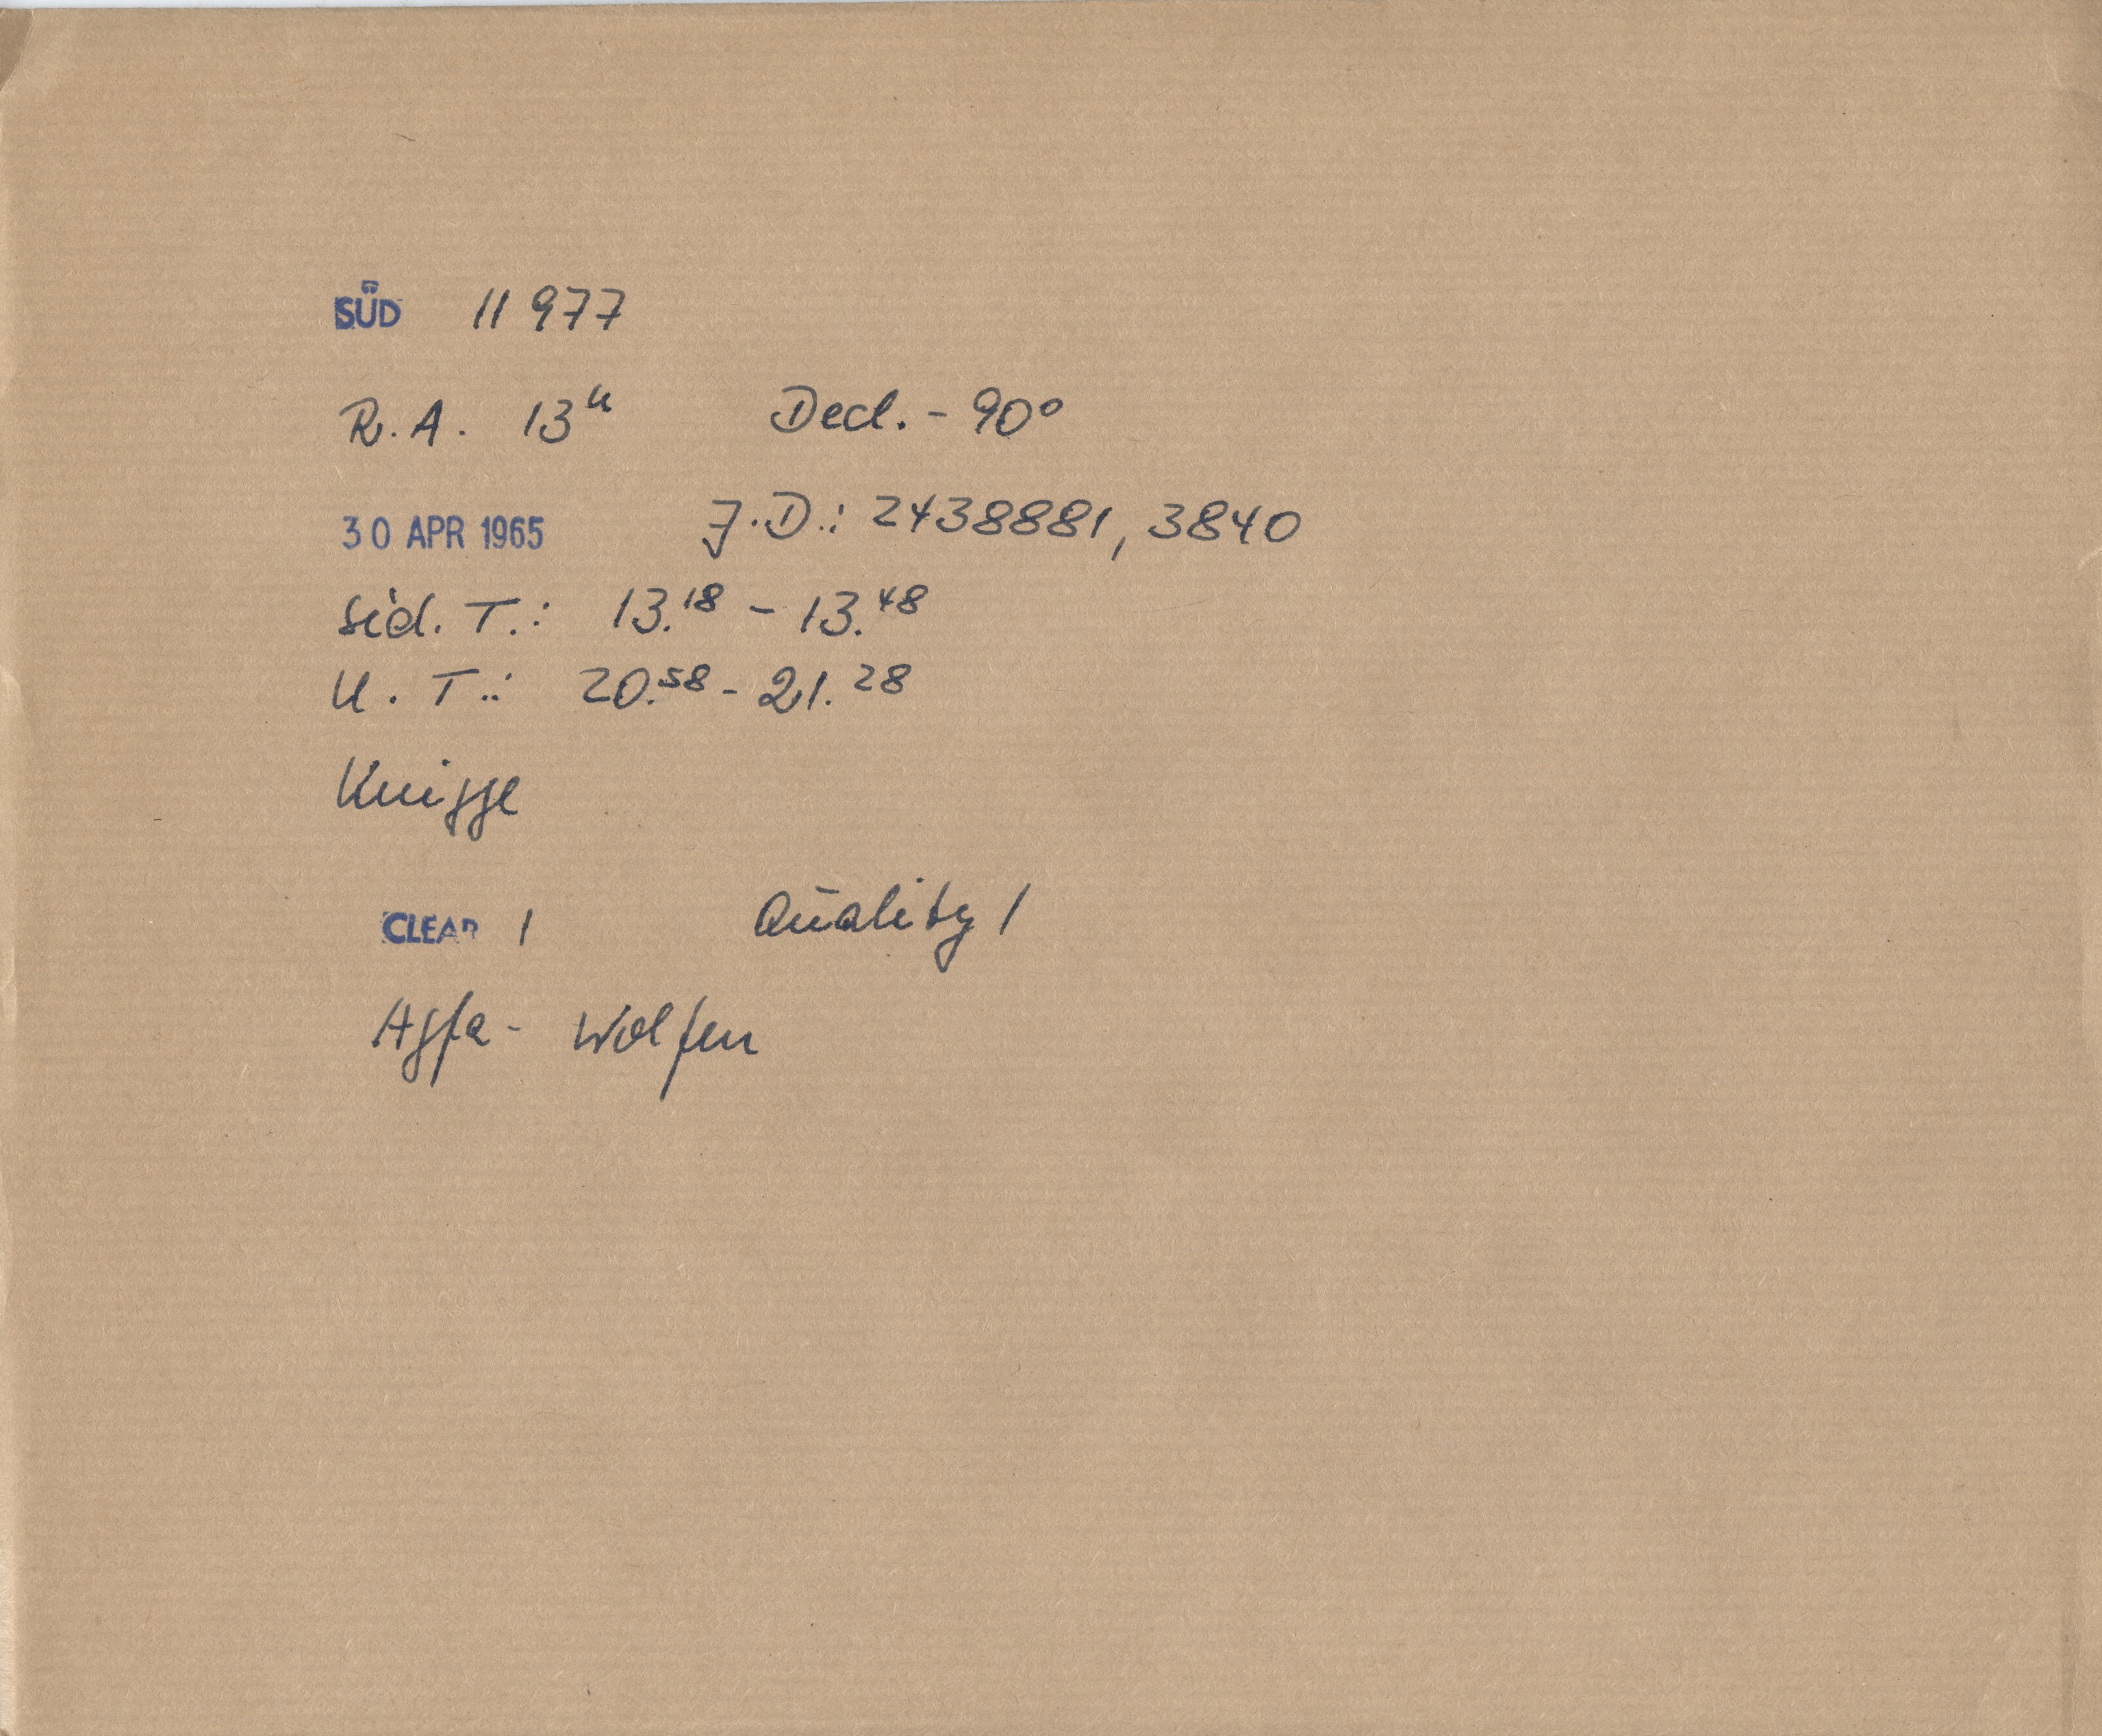 SÜD 11 977
R.A. 13ʰ Decl. - 90°
30 APR 1965 J.D.: 2438881, 3840
Sid. T.: 13.¹⁸ - 13.⁴⁸
U. T.: 20.⁵⁸ - 21.²⁸
Knigge
CLEAR 1 Quality 1
Agfa - Wolfen